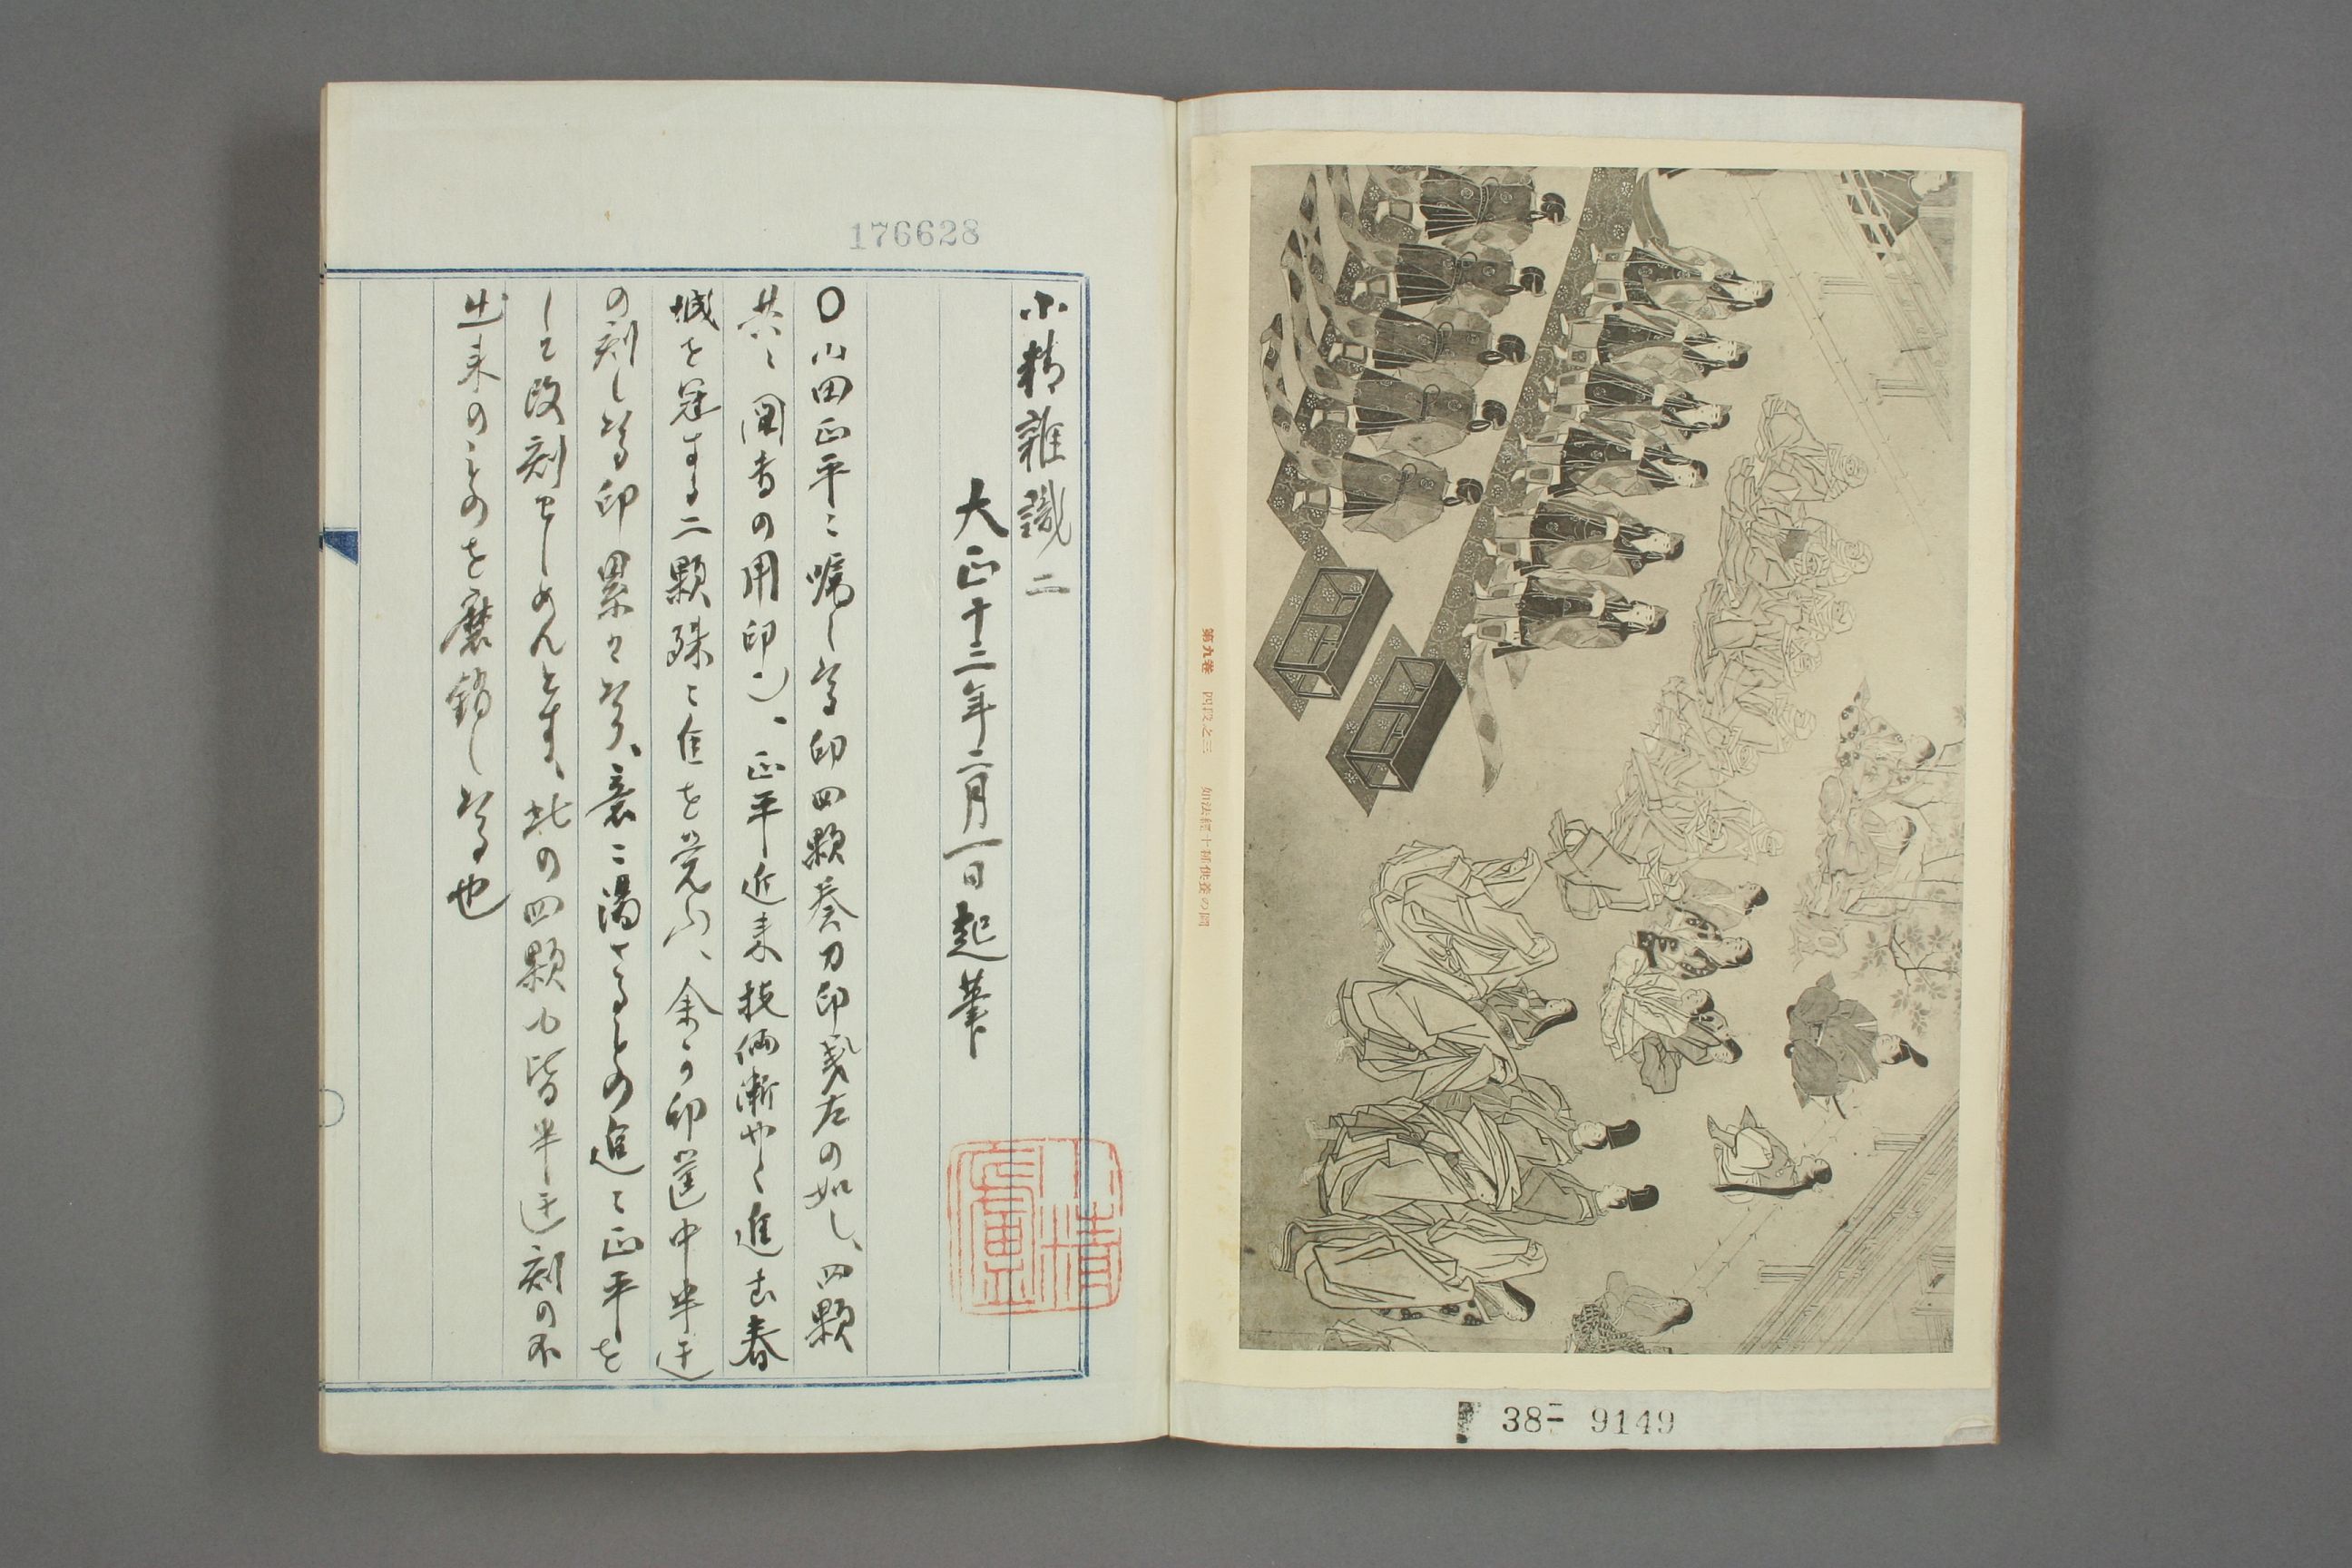 第九巻 四段之三 如法経十種供養の図
38- 9149
176628
小精雑識 二
大正十二年二月一日起筆
〇小田正平ニ嘱したる印四顆奏刀印影左の如し、四顆
共ニ関春の用印ニ、正平近来技倆漸やく進む春
城を冠する二顆殊ニ進を覚ふ、余の印篋中半迂
の刻したる印累々たり、意ニ満さるもの追て正平を
して改刻せしめんとす、此の四顆も皆半迂刻の不
出来のものを磨錯したる也
小精廬